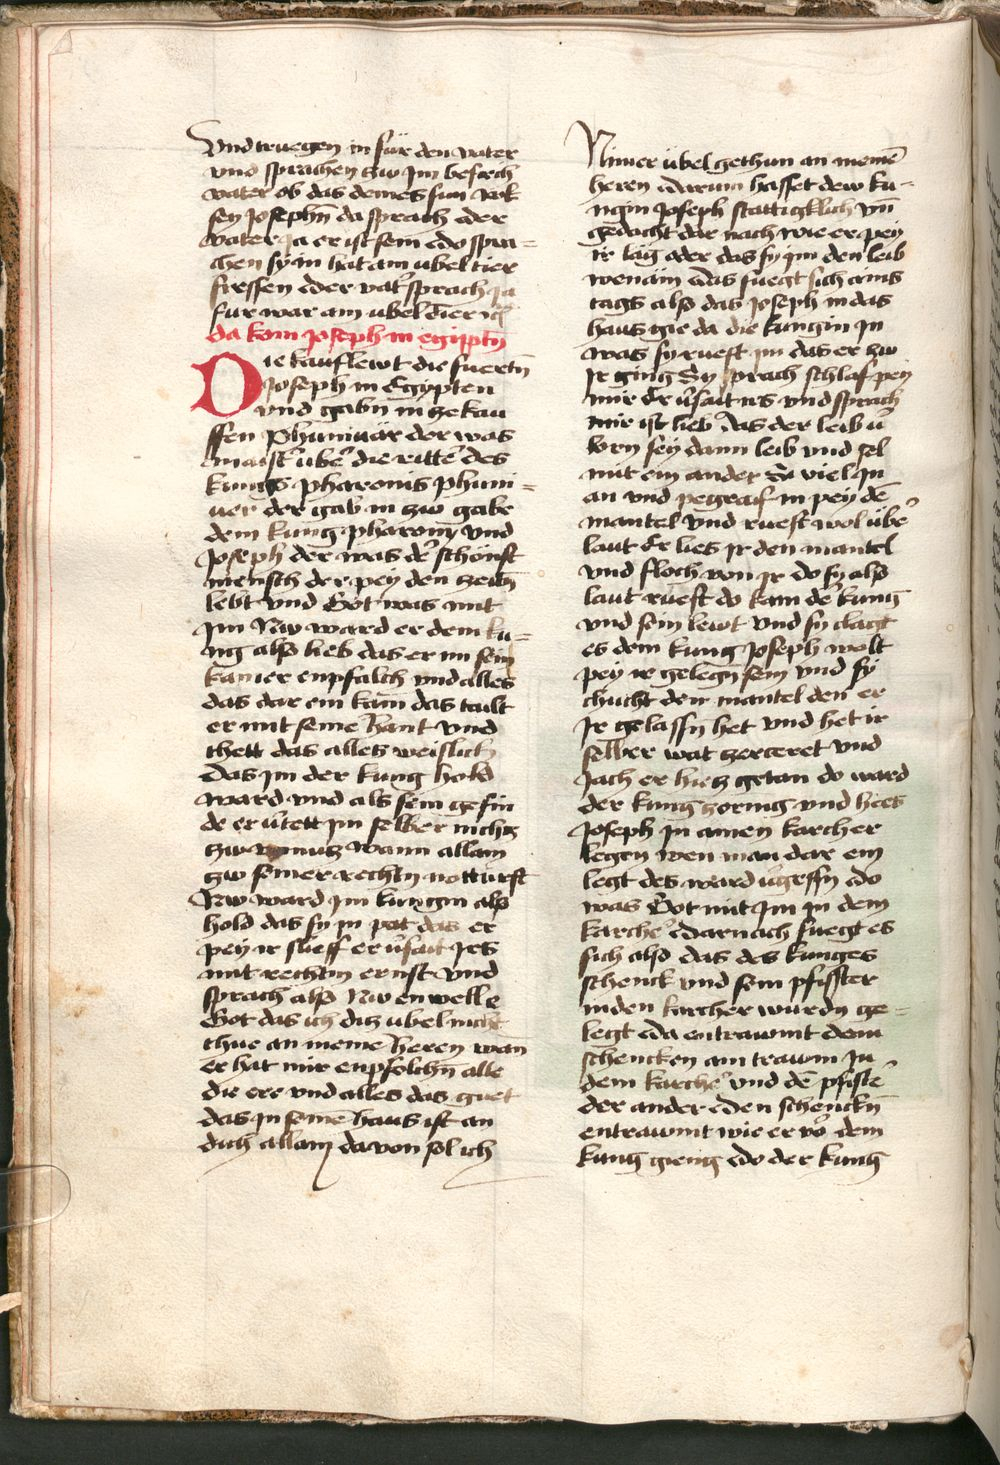 Vnd truegen in für den vater
vnd sprachen zw Im besich
vater ob das deines sun rok
sey Josephn̄ da sprach der
vater Ja er ist sein do spra=
chen sy in hat am ubel tier
fressen der vat̓ sprach Ja
fur war am ubel dier ich
da kom Joseph in egiptn̄
Die kauflewt die fuertn̄
Joseph in Egypten
vnd gabn in ze kau
ffen Phunuuär der was
maist̓ ube̓ die ritte̓ des
kunigs pharonis phuni=
uer der gab in zw gabe
dem kunig pharony vnd
Joseph der was de̓ schönst
mensch der pey den zeitn̄
lebt vnd Got was mit
Im Nw ward er dem ku=
nig also lieb das er im sein
kamer enpfalch vnd alles
das dar ein kam das tailt
er mit seine hant vnd
thett das alles weislich
Das Im der kunig hold
ward vnd als sein gesin
de er v̓tett im selber nichtz
zw nutz wann allain
zw seiner rechtn notturft
Nw ward Im kunigin als
hold das sy in pat das er
pey ir slieff er v̓sait Jrs
mit rechtm ernst vnd
sprach also Nw en welle
Got das ich ditz ubel nicht
thue an meine heren wan̄
er hat mir enpfolchn̄ alle
die ere vnd alles das guet
das in seinē haus ist an
dich allain da von sol ich
Nimer übel gethun an meinē
heren darum hasset dew ku=
nigin Joseph stättigklich vn̄
gedacht dar nach wie er pey
ir läg oder das sy im den leib
wenäm das fuegt sich ains
tags also das Joseph in das
haus gie da die kungin in
was sy rueft im das er zw
Ir ging Sy sprach schlaf pey
mir Er v̓sait irs vnd sprach
mir ist lieb das der leib v̓
lorn sey dann leib vnd sel
mit ein ander Si viel in
an vnd pegraif in pey dē
mantel vnd rueft wol übe̓
laut Er lies Ir den mantel
vnd floch von Ir do sy also
laut rueft do kam de̓ kunig
vnd sein lewt vnd sy clagt
es dem kunig Joseph wolt
pey ir gelegn̄ sein vnd sy
thucht den mantel den er
Ir gelassn̄ het vnd het ir
selber wat zerceret vnd
Jach er hietz getan do ward
der kunig zornig vnd hies
Joseph in ainen karcher
legen wen man dar ein
legt des ward v̓gessn do
was Got mit Im in dem
karche̓ Darnach fuegt es
sich also das des kunges
schenck vnd sein pfisster
in den karcher wurdn ge=
legt da entrawmt dem
schencken am trawm In
dem karche̓ vnd dē pfiste̓
der ander den schenckn̄
entrawmt wie er vo̓ dem
kunig gieng do der kunig